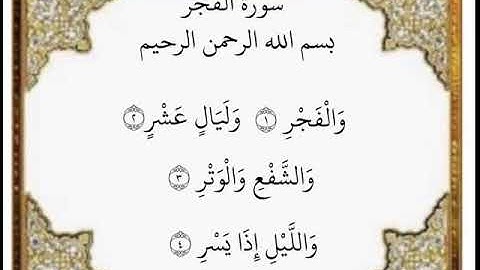 سورة الفجر
بسم الله الرحمن الرحيم
وَالْفَجْرِ ۝١ وَلَيَالٍ عَشْرٍ ۝٢
وَالشَّفْعِ وَالْوَتْرِ ۝٣
وَاللَّيْلِ إِذَا يَسْرِ ۝٤